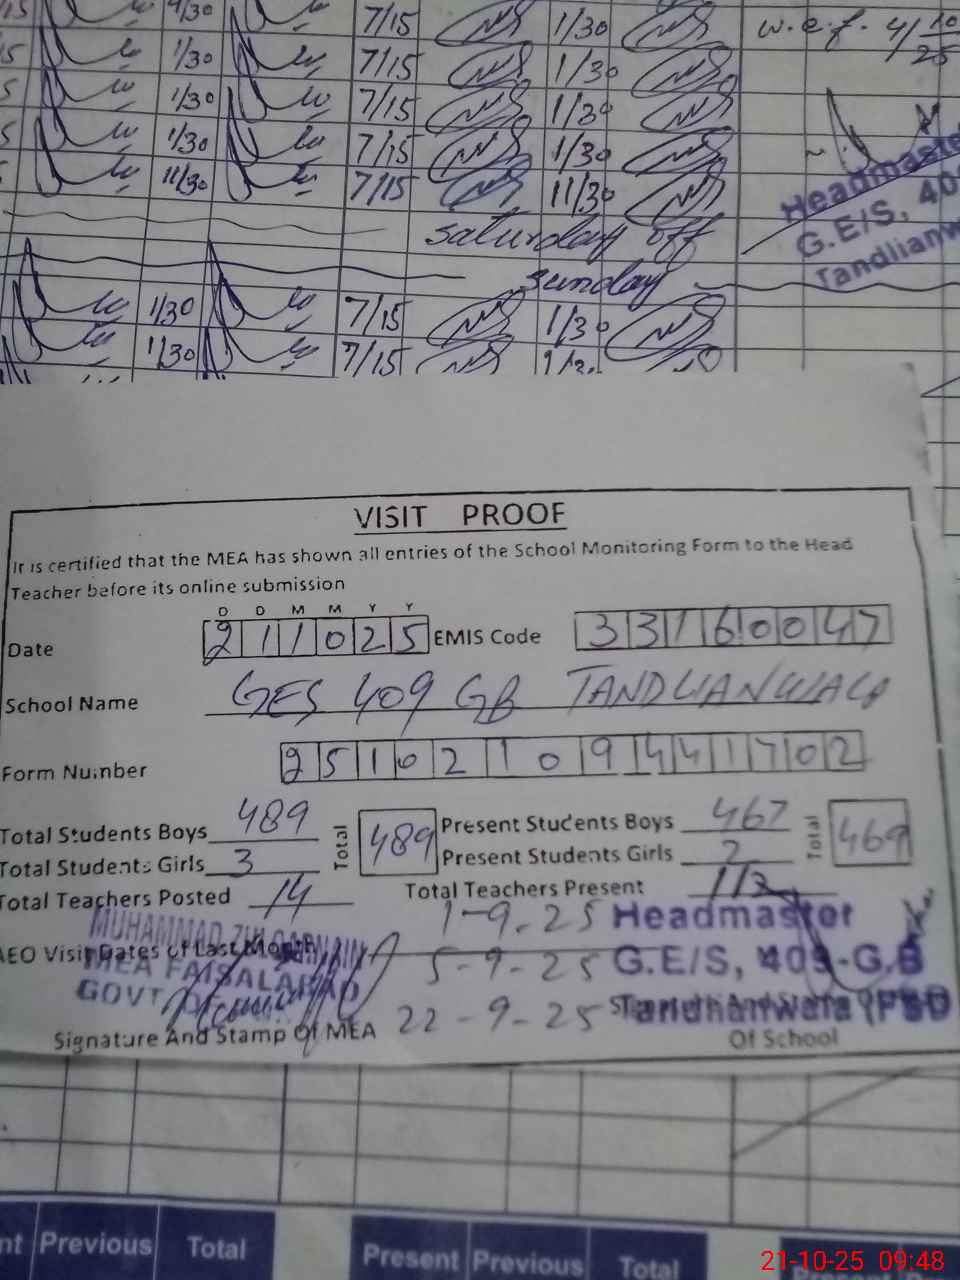 7/15 1/30 w.e.f. 4/10/25
1/30 7/15 1/30
1/30 7/15 1/30
1/30 7/15 1/30
11/30 7/15 11/30
Headmaster
G.E/S, 409
Tandlianw
Saturday off
Sunday
1/30 7/15 1/30
1/30 7/15
VISIT PROOF
It is certified that the MEA has shown all entries of the School Monitoring Form to the Head
Teacher before its online submission
D D M M Y Y
Date 211025 EMIS Code 33160047
School Name GES 409 GB TANDLIANWALA
Form Number 25102109441702
Total Students Boys 489 Total 489 Present Students Boys 467 Total 469
Total Students Girls 3 Present Students Girls 2
Total Teachers Posted 14 Total Teachers Present
1-9-25 Headmaster
MUHAMMAD ZULQARNAIN
AEO Visit Dates of Last Month 5-9-25 G.E/S, 409-G.B
MEA FAISALABAD
GOVT
22-9-25 Tandlianwala (FSD
Signature And Stamp Of MEA
Of School
nt Previous Total Present Previous Total
21-10-25 09:48